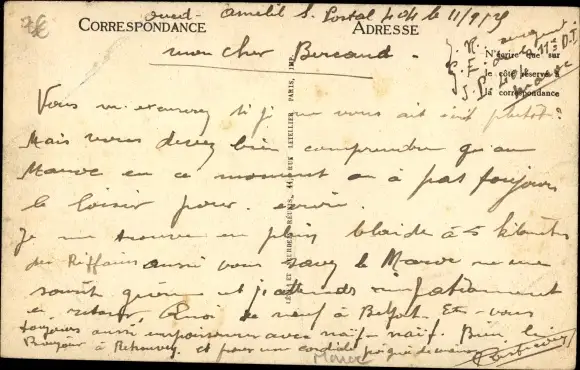 7€
oued- Amelil S. Postal 404 le 11/9/25
CORRESPONDANCE
ADRESSE
mon cher Berçaud.
N'écrire que sur
le côté réservé à
la correspondance
Vous m'excuserez si je ne vous ait écrit plutot?
Mais vous devez bien comprendre qu'au
Maroc en ce moment on à pas toujours
le loisir pour écrire.
Je me trouve en plein blaide à 5 kilomètres
des Riffains aussi vous savez le Maroc ne me
sourit guère et j'attends impatiemment
le retour. Quoi de neuf à Belfort. Etes-vous
toujours aussi
avec naïf-naïf. Bien le
Bonjour à et pour une cordiale poignée de mains
Maroc
LÉVY ET NEURDEIN RÉUNIS, 44, RUE LETELLIER, PARIS, IMP.